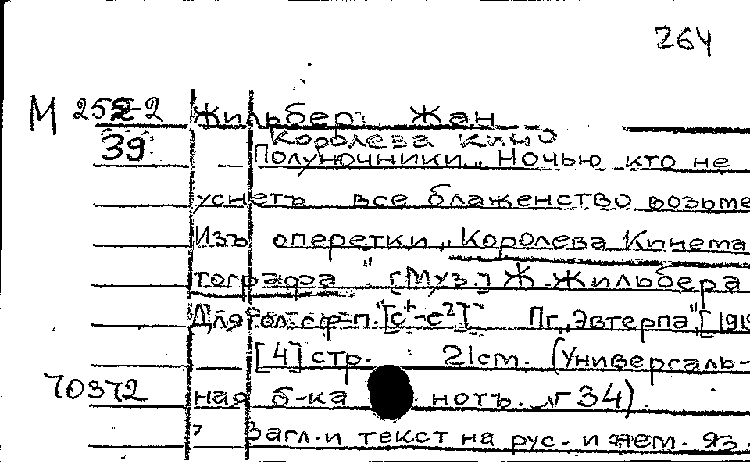 264
М 252-2 Жильбер Жан
39 Королева кино
Полуночники. Ночью кто не
уснетъ все блаженство возьме
Изъ оперетки „Королева Кинема
тографа" [Муз.] Ж. Жильбера
Для гол. с ф-п. [c¹-c²] Пг. „Эвтерпа", [191
[4] стр. 21 cm. (Универсаль-
70372 ная б-ка нотъ. № 34)
Загл. и текст на рус. и нем. яз.